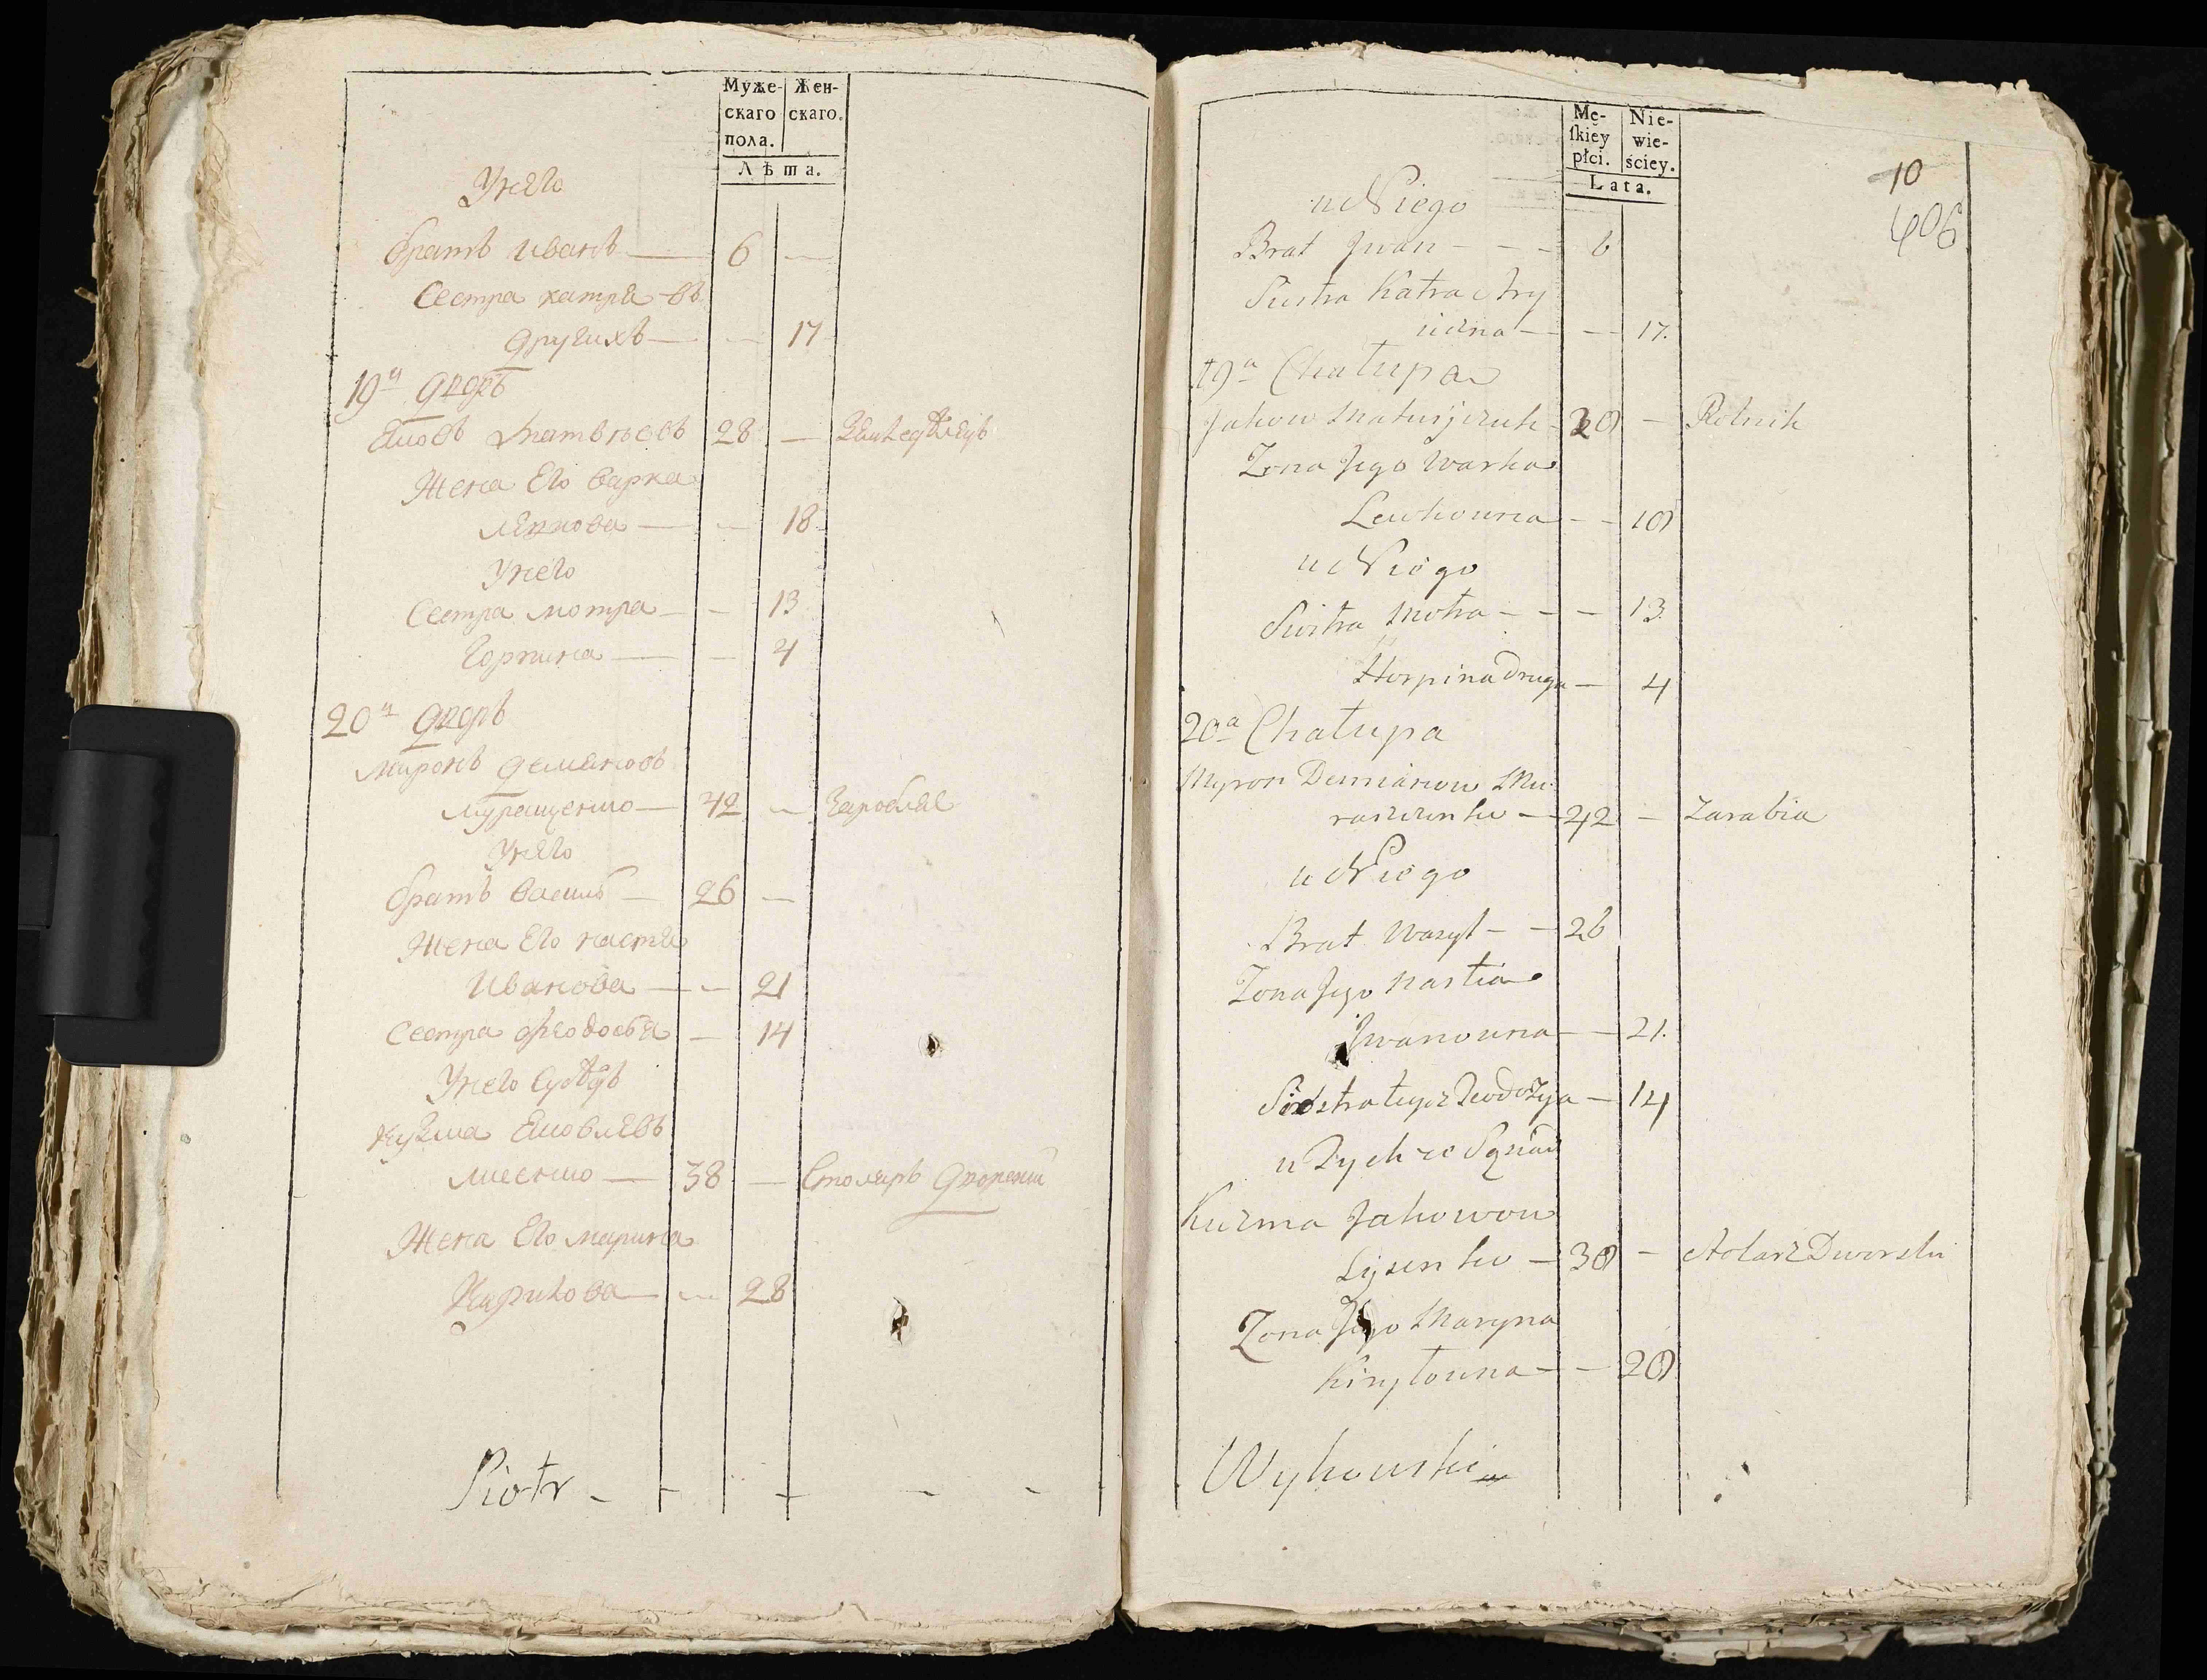 Муже- Жен-
скаго скаго.
пола.
Лѣта.
Унего
братъ иванъ — 6 —
Сестра катря —
— — 17
19й дворъ
Яковъ Матвѣевъ 28 —
Жена Его варка
— — 18
Унего
Сестра мотра — — 13
Горпина — — 4
20й дворъ
Миронъ демяновъ
Муращенко — 42 —
Унего
братъ василь — 26 —
Жена Его настя
Иванова — — 21
Сестра феодосья — 14
Унего Сусѣдъ
Кузма Яковлевъ
лисенко — 38 — Столяръ дворский
Жена Его марина
Кирилова — — 28
Piotr - - - - -
Mę- Nie-
ſkiey wie-
płci. ściey.
Lata.
10
406
u Niego
Brat Jwan - - - 6
Siestra Katra
— — 17.
19a Chałupa
Jakow Matwijczuk - 28 — Rolnik
Zona Jego Warka
Lewkowna - - 18
u Niego
Siestra Motra - - — 13
Horpina druga — 4
20a Chałupa
Myron Demianow Mu-
raszczenko — 42 — Zarabia
u Niego
Brat Wasyl - — 26
Zona Jego Nastia
Jwanowna — — 21.
Siostra tegoż Teodozya — 14
u Tychże Sąsiad
Kuzma Jakowow
Lysenko — 38 — Stolarz Dworski
Zona Jego Maryna
Kiryłowna — — 28
Wykowski